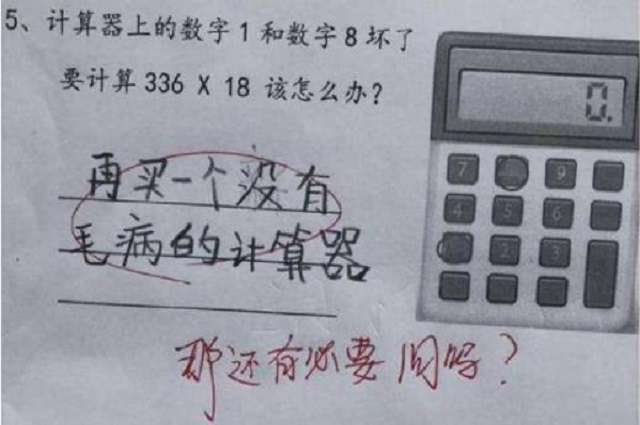 5、计算器上的数字1和数字8坏了
要计算 336 X 18 该怎么办?
再买一个没有
毛病的计算器
那还有必要问吗?
0.
7 9
4 5 6
2 3